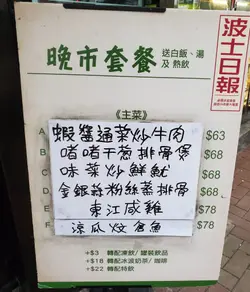 晚市套餐 送白飯、湯
及 熱飲
波士日報
《主菜》
蝦醬通菜炒牛肉 $63
啫啫干葱排骨煲 $68
味菜炒鮮魷
金銀蒜粉絲蒸排骨 $68
東江咸雞 $78
涼瓜炆倉魚 $78
+$3 轉配凍飲/罐裝飲品
+$18 轉配冰波奶茶/咖啡
+$22 轉配特飲